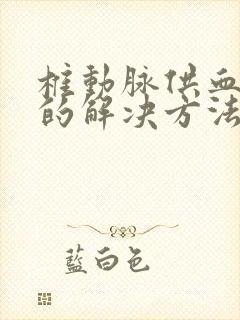 椎動脉供血
的解决方法
藍白色